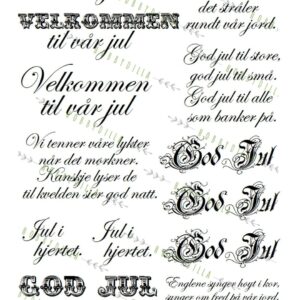 VELKOMMEN
til vår jul
Velkommen
til vår jul
Vi tenner våre lykter
når det morkner.
Kanskje lyser de
til kvelden sier god natt.
Jul i
hjertet.
Jul i
hjertet.
GOD JUL
det stråler
rundt vår jord.
God jul til store,
god jul til små.
God jul til alle
som banker på.
God Jul
God Jul
God Jul
Englene synger høyt i kor,
synger om fred på vår jord.